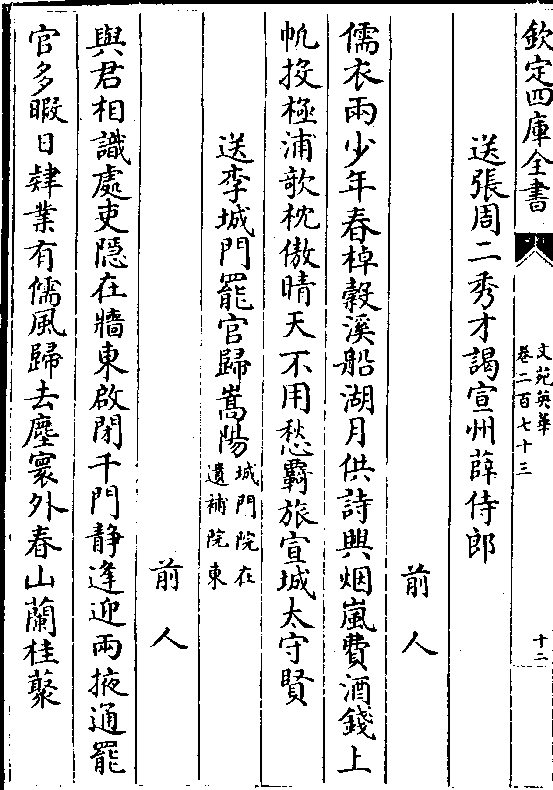 欽定四庫全書
文苑英華
卷二百七十三
十二
送張周二秀才謁宣州薛侍郎
前人
儒衣兩少年春棹縠溪船湖月供詩興烟嵐費酒錢上
帆投極浦歌枕傲晴天不用愁羈旅宣城太守賢
送李城門罷官歸嵩陽
城門院在
遺補院東
前人
與君相識處吏隠在牆東啟閉千門靜逢迎兩掖通罷
官多暇日肄業有儒風歸去塵寰外春山蘭桂藂